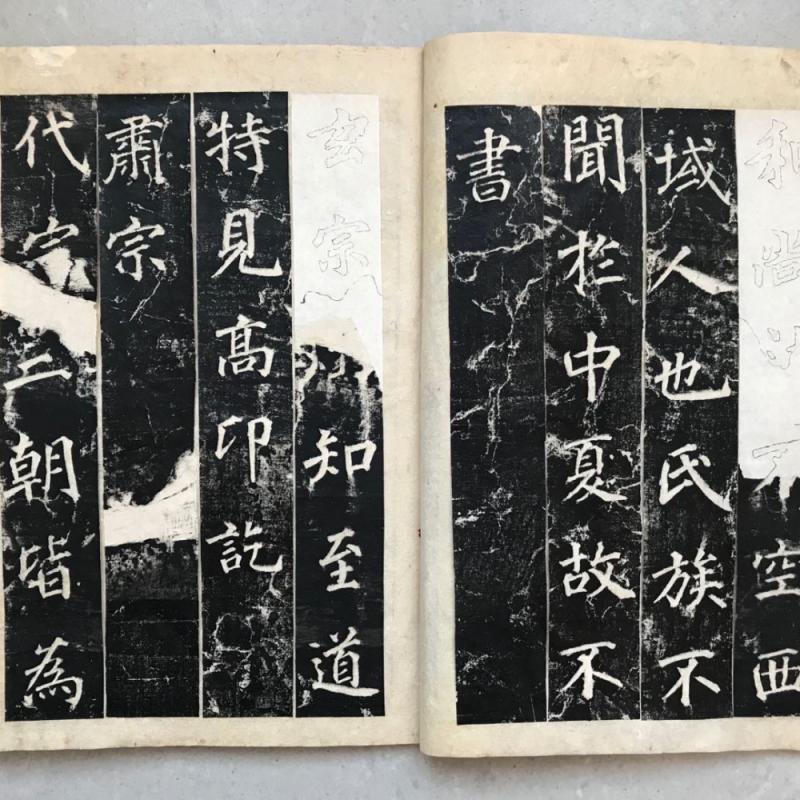 和尚不空西
域人也氏族不
聞於中夏故不
書
玄宗知至道
特見高卬訖
肅宗
代宗二朝皆為